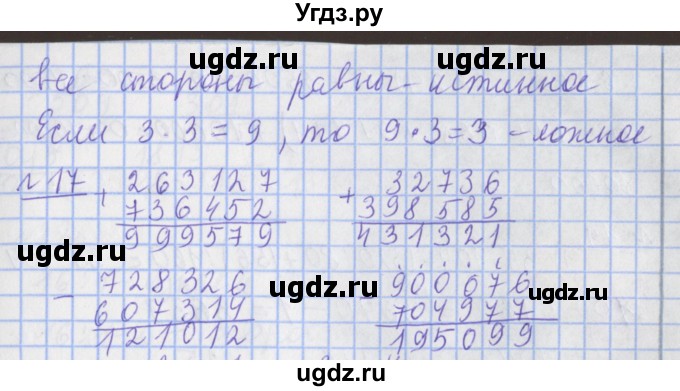 Угдз.ру
ugdz.ru ugdz.ru
все стороны равны - истинное
ugdz.ru
Если 3·3=9, то 9·3=3 - ложное
ugdz.ru ugdz.ru
№17 + 263127 + 32736
736452 398585
999579 431321
ugdz.ru ugdz.ru
- 728326 - 900076
607314 704977
121012 195099
ugdz.ru ugdz.ru
Угдз.ру